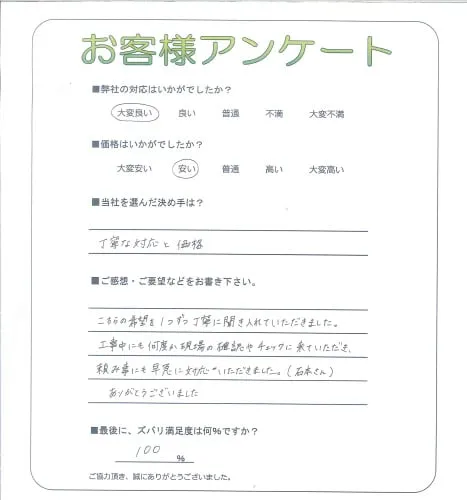 お客様アンケート
■弊社の対応はいかがでしたか？
大変良い 良い 普通 不満 大変不満
■価格はいかがでしたか？
大変安い 安い 普通 高い 大変高い
■当社を選んだ決め手は？
丁寧な対応と価格
■ご感想・ご要望などをお書き下さい。
こちらの希望を1つずつ丁寧に聞き入れていただきました。
工事中にも何度か現場の確認やチェックに来ていただき、
頼み事にも早急に対応いただきました。(石本さん)
ありがとうございました
■最後に、ズバリ満足度は何%ですか？
100 %
ご協力頂き、誠にありがとうございました。